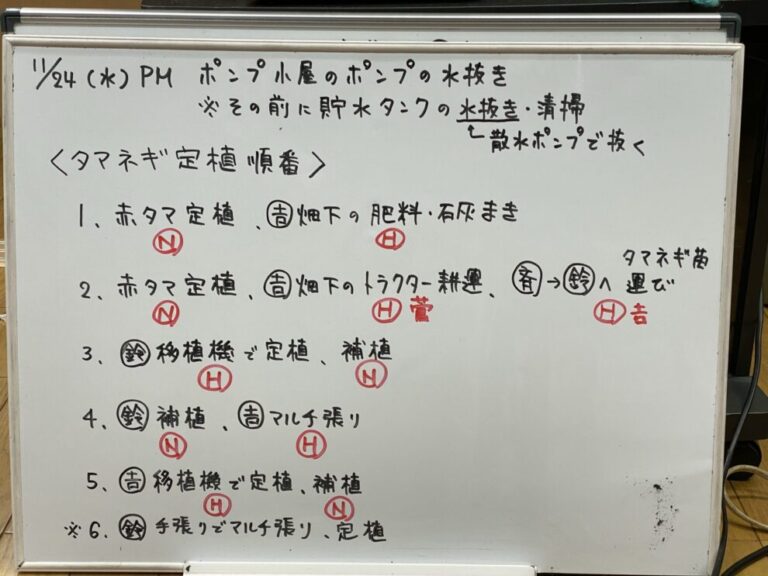 11/24(水)PM ポンプ小屋のポンプの水抜き
※その前に貯水タンクの水抜き・清掃
散水ポンプで抜く
〈タマネギ定植順番〉
1、赤タマ定植、吉畑下の肥料・石灰まき
N H
2、赤タマ定植、吉畑下のトラクター耕運、斉→鈴へタマネギ苗運び
N H菅 H吉
3、鈴移植機で定植、補植
H N
4、鈴補植、吉マルチ張り
N H
5、吉移植機で定植、補植
H N
※6、鈴手張りでマルチ張り、定植